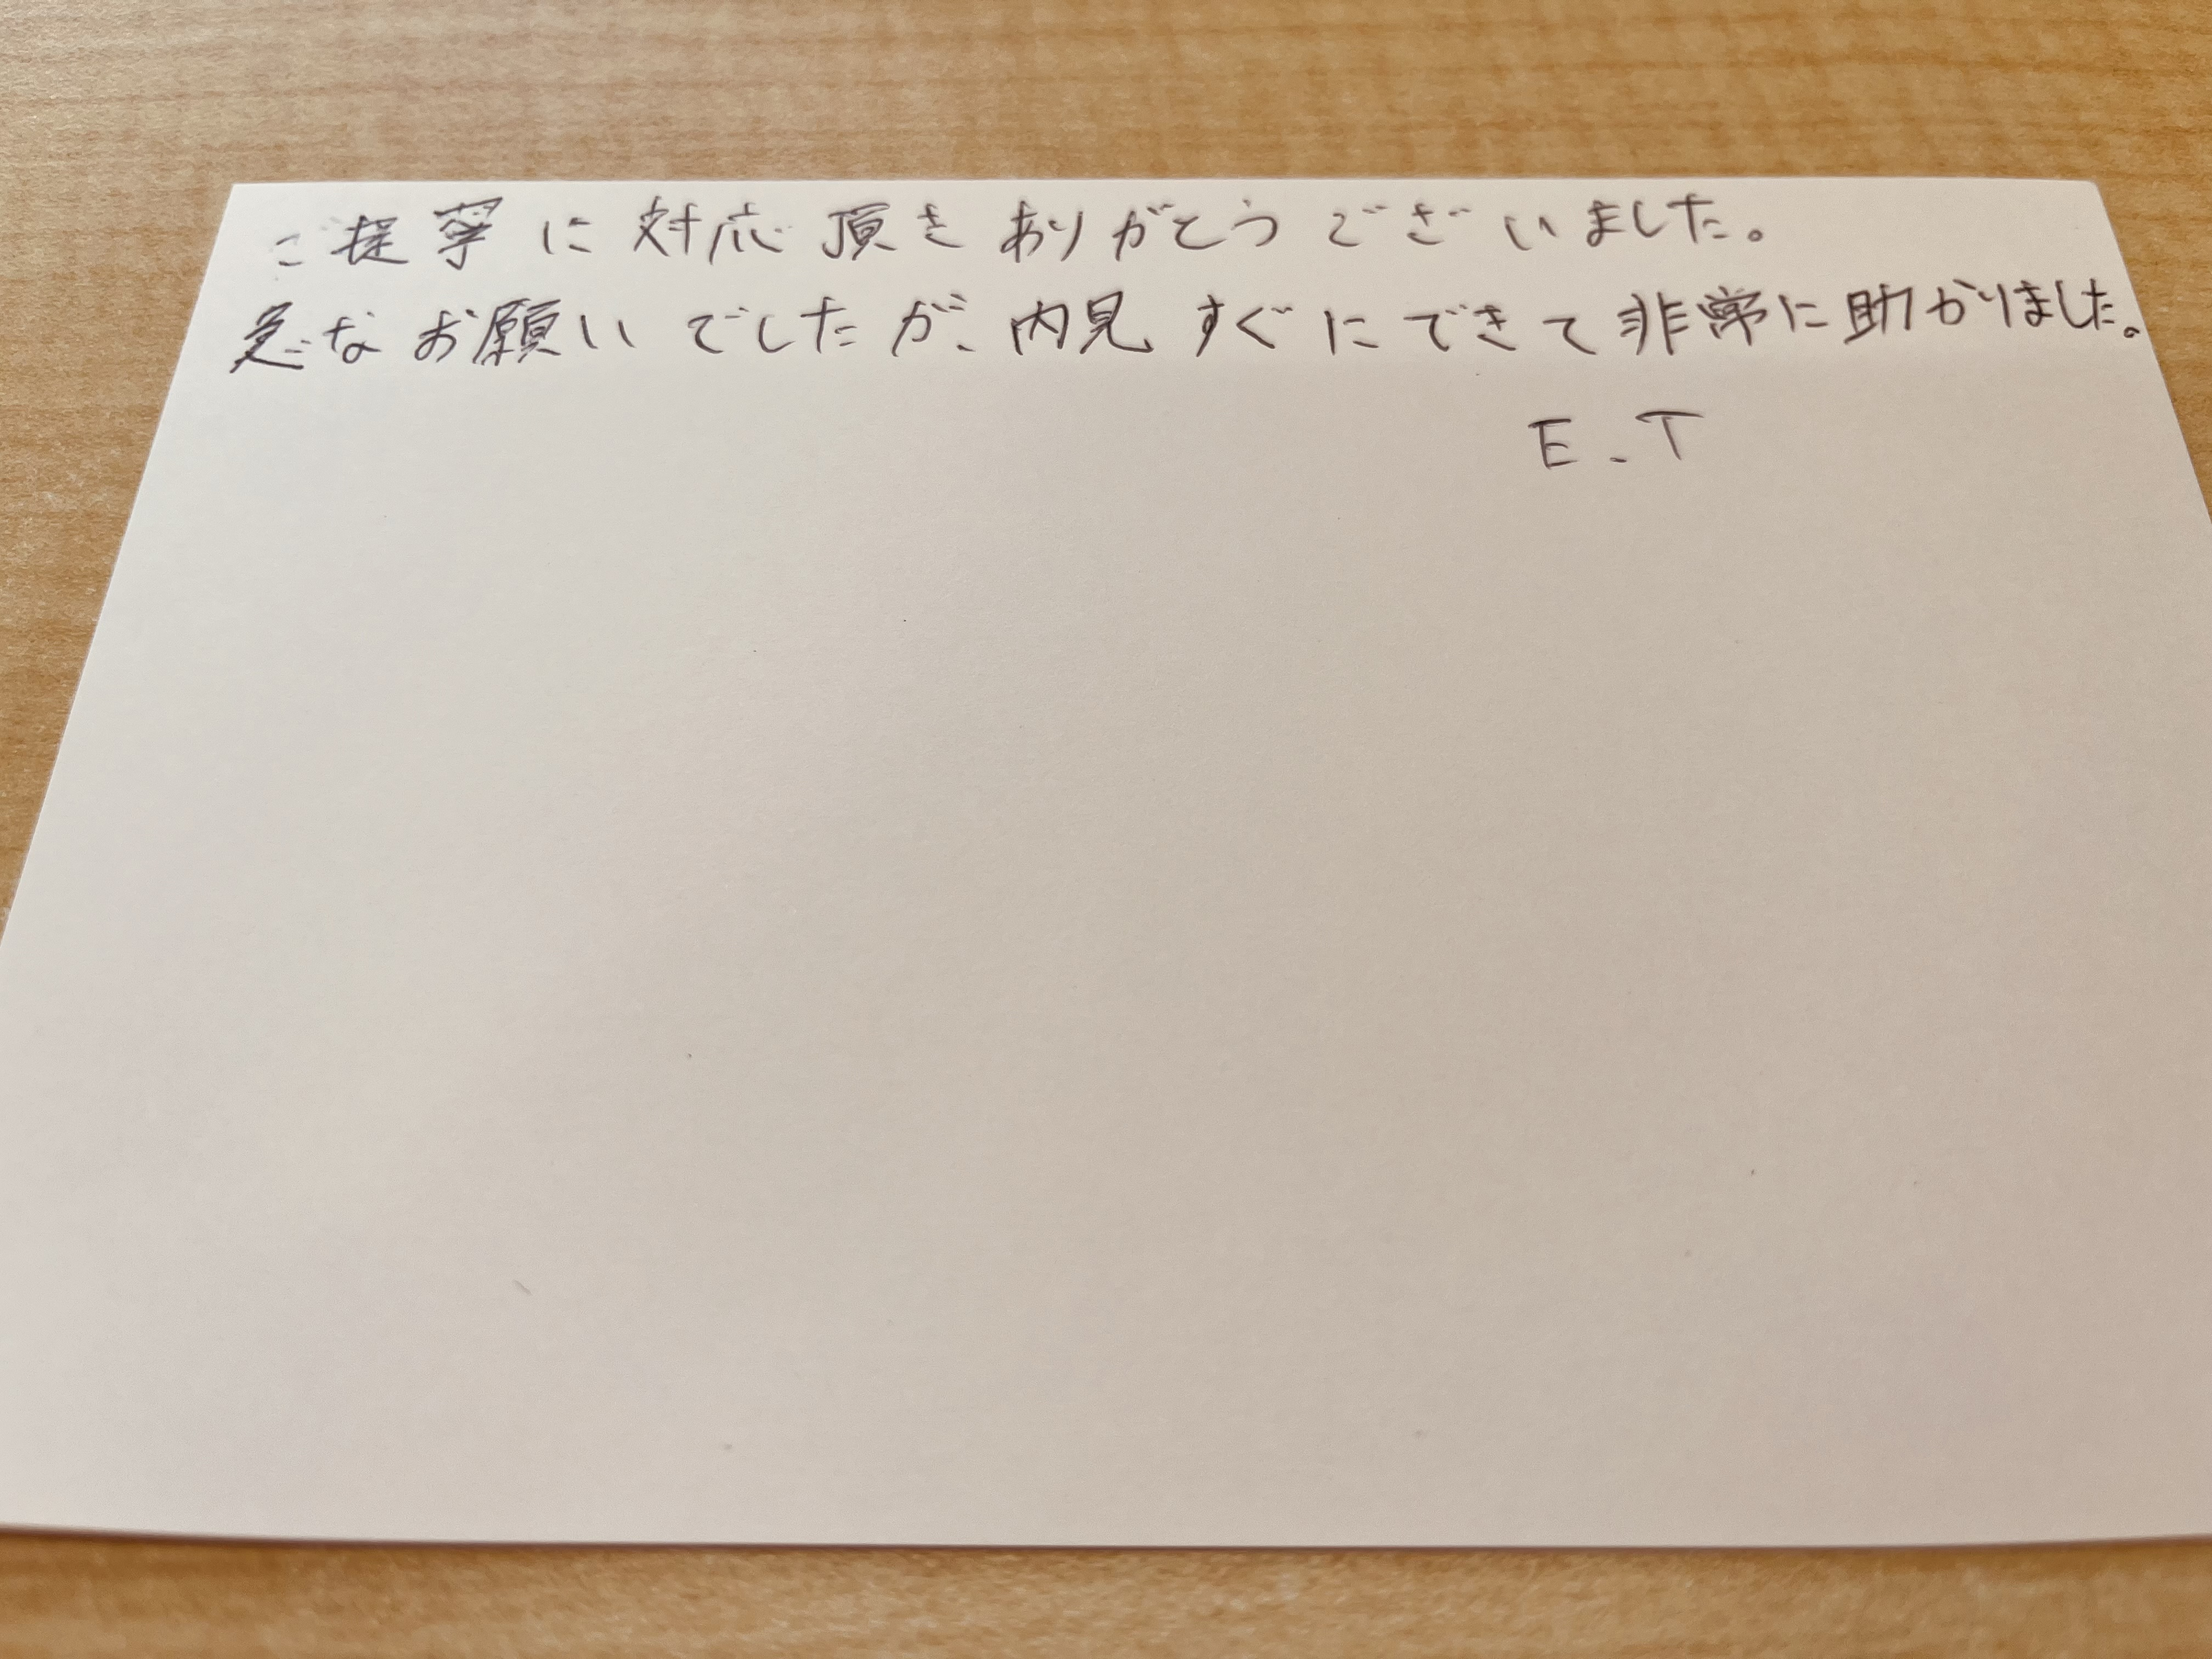 ご提寧に対応頂きありがとうございました。
急なお願いでしたが、内見すぐにできて非常に助かりました。
E.T